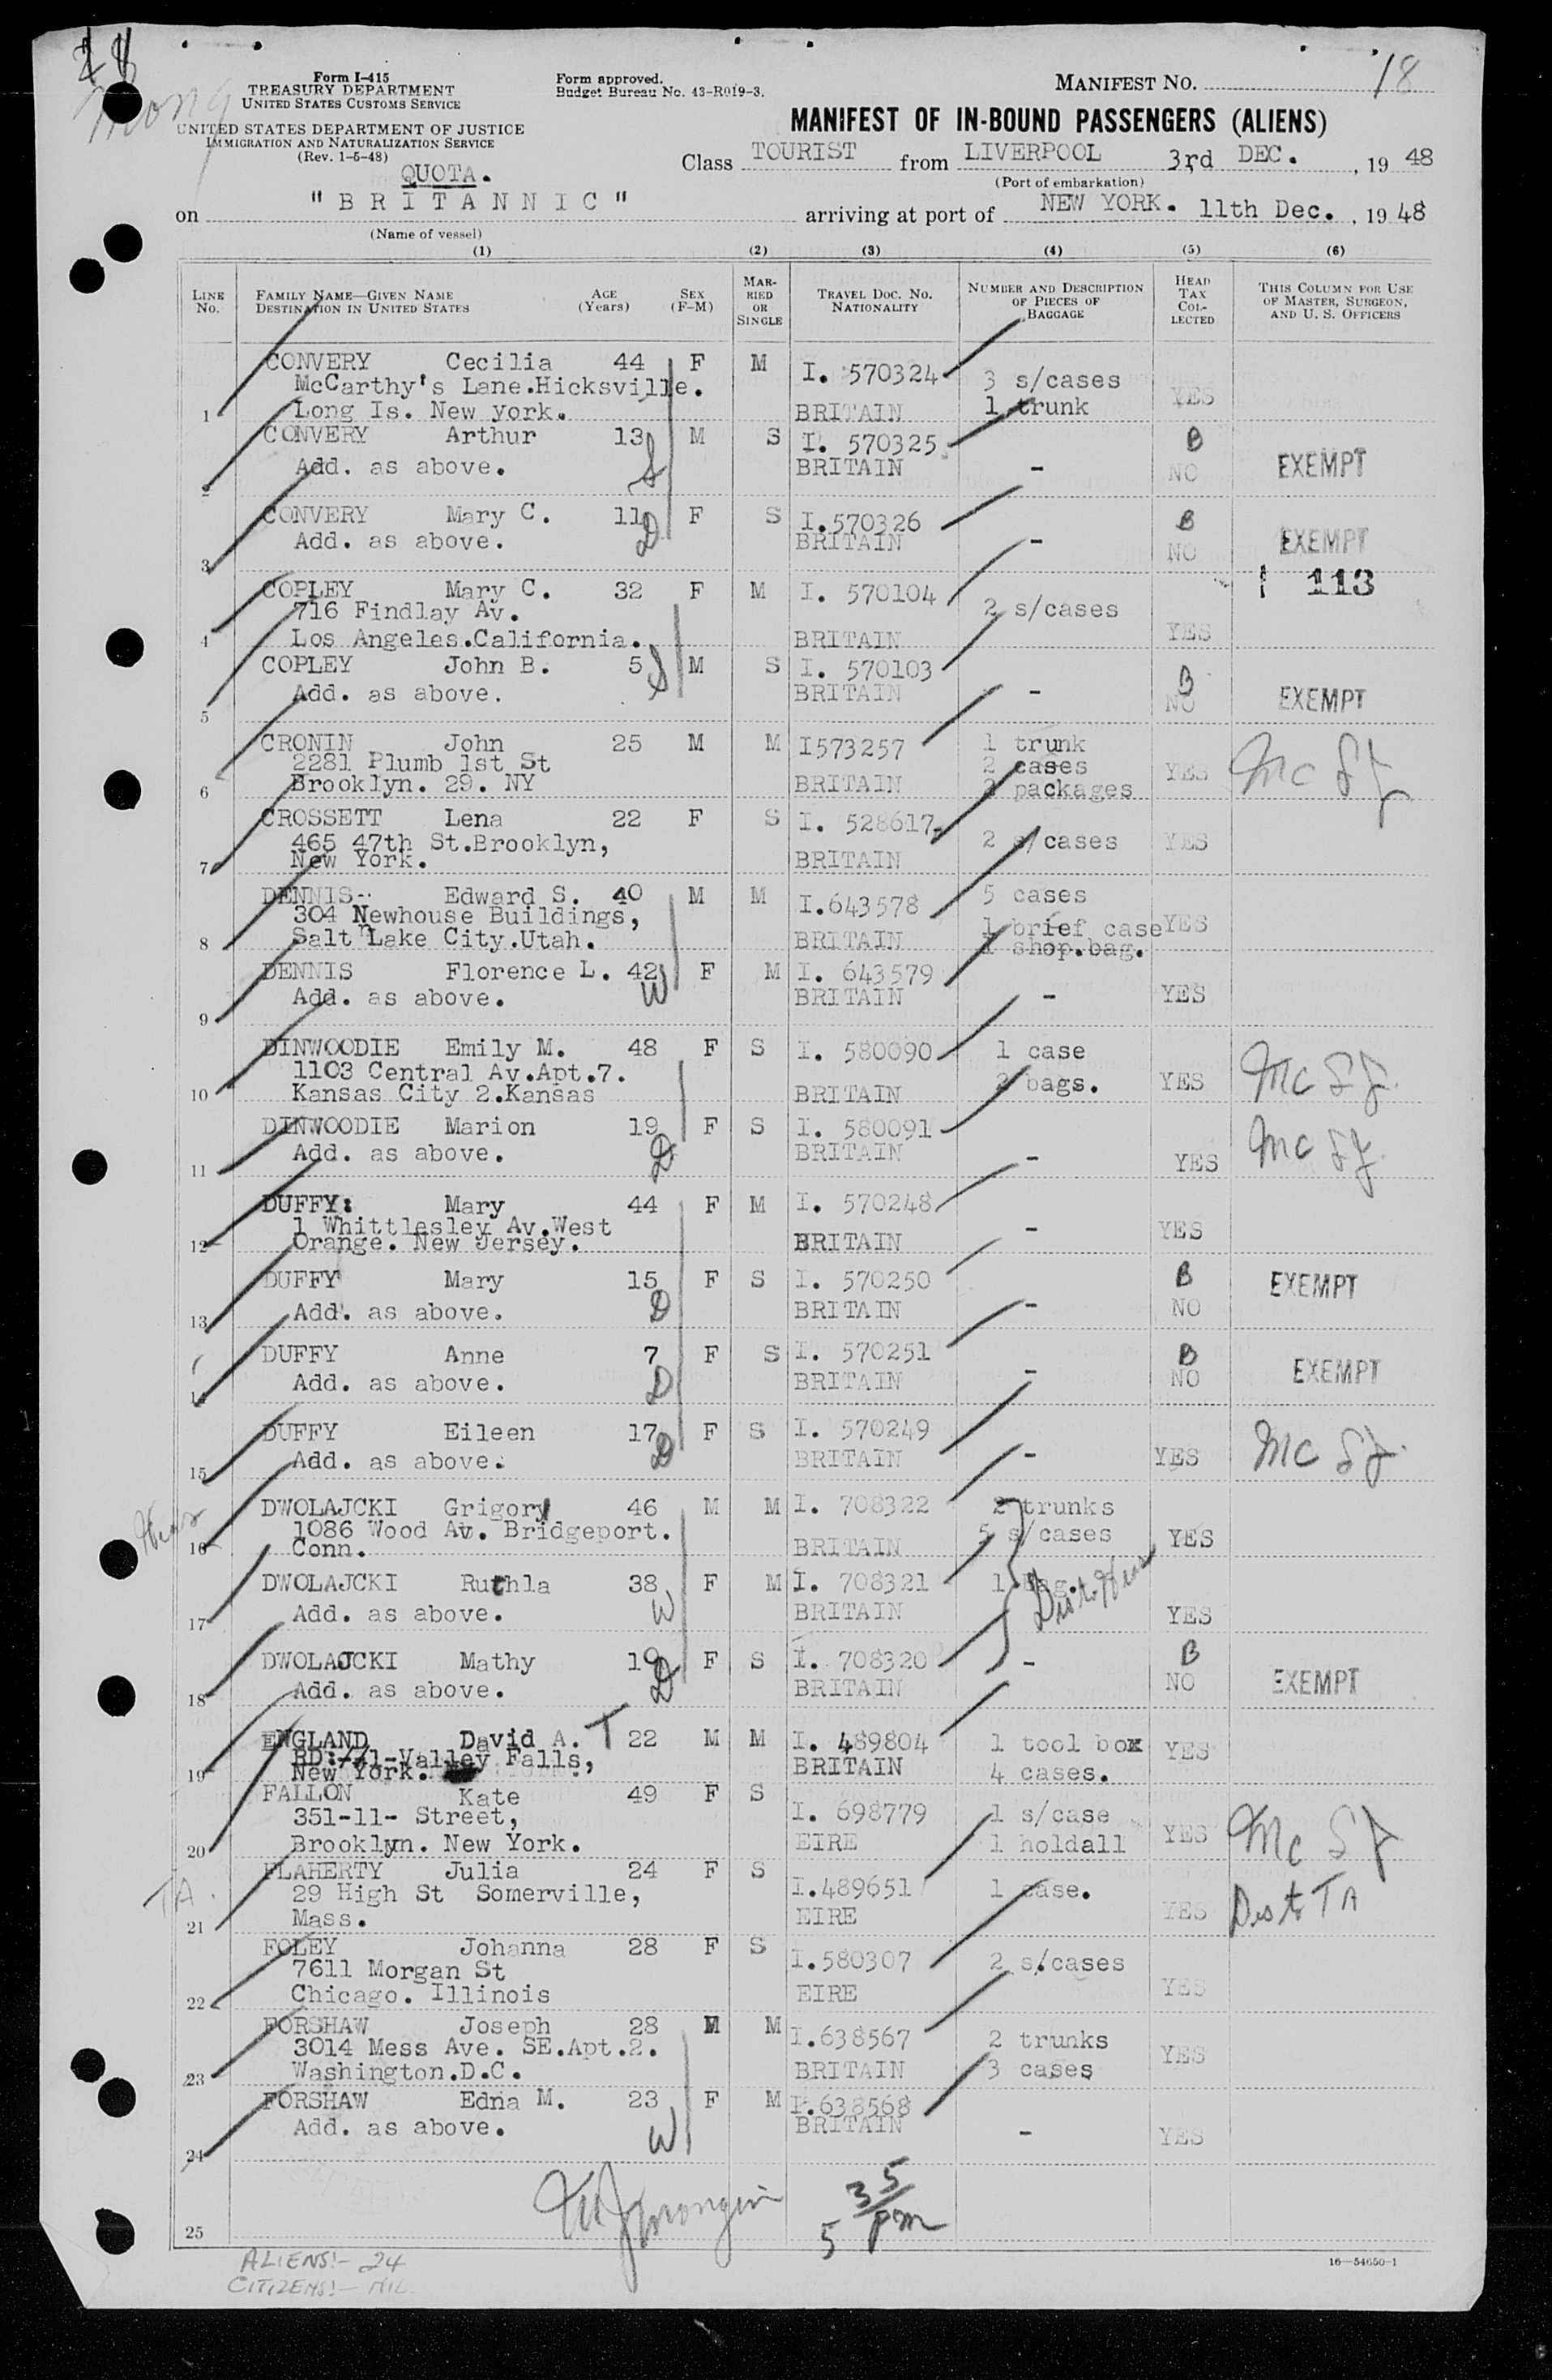 18
Form I-415
TREASURY DEPARTMENT
UNITED STATES CUSTOMS SERVICE
Form approved.
Budget Bureau No. 43-R019-3.
MANIFEST NO. 18
UNITED STATES DEPARTMENT OF JUSTICE
IMMIGRATION AND NATURALIZATION SERVICE
(Rev. 1-5-48)
MANIFEST OF IN-BOUND PASSENGERS (ALIENS)
QUOTA.
Class TOURIST from LIVERPOOL 3rd DEC. , 19 48
(Port of embarkation)
on "BRITANNIC" arriving at port of NEW YORK. 11th Dec. , 19 48
(Name of vessel)
(1) (2) (3) (4) (5) (6)
LINE No.
FAMILY NAME—GIVEN NAME
DESTINATION IN UNITED STATES
AGE (Years)
SEX (F-M)
MARRIED OR SINGLE
TRAVEL DOC. NO.
NATIONALITY
NUMBER AND DESCRIPTION OF PIECES OF BAGGAGE
HEAD TAX COLLECTED
THIS COLUMN FOR USE OF MASTER, SURGEON, AND U. S. OFFICERS
CONVERY Cecilia 44 F M I. 570324
McCarthy's Lane.Hicksville. 3 s/cases
1 Long Is. New york. BRITAIN 1 trunk YES
CONVERY Arthur 13 M S I. 570325 B
2 Add. as above. S BRITAIN - NO EXEMPT
CONVERY Mary C. 11 F S I.570326 B
3 Add. as above. D BRITAIN - NO EXEMPT
113
COPLEY Mary C. 32 F M I. 570104
716 Findlay Av. 2 s/cases
4 Los Angeles.California. BRITAIN YES
COPLEY John B. 5 S M S I. 570103 B
5 Add. as above. BRITAIN - NO EXEMPT
CRONIN John 25 M M I573257 1 trunk
2281 Plumb 1st St 2 cases YES
6 Brooklyn. 29. NY BRITAIN 2 packages
CROSSETT Lena 22 F S I. 528617
465 47th St.Brooklyn, 2 s/cases YES
7 New York. BRITAIN
DENNIS Edward S. 40 M M I.643578 5 cases
304 Newhouse Buildings, 1 brief case YES
8 Salt Lake City.Utah. BRITAIN 1 shop.bag.
DENNIS Florence L. 42 F M I. 643579
9 Add. as above. W BRITAIN - YES
DINWOODIE Emily M. 48 F S I. 580090 1 case
1103 Central Av.Apt.7. 2 bags. YES
10 Kansas City 2.Kansas BRITAIN
DINWOODIE Marion 19 F S I. 580091
11 Add. as above. D BRITAIN - YES
DUFFY: Mary 44 F M I. 570248
1 Whittlesley Av.West - YES
12 Orange. New Jersey. BRITAIN
DUFFY Mary 15 F S I. 570250 B
13 Add. as above. D BRITAIN - NO EXEMPT
DUFFY Anne 7 F S I. 570251 B
14 Add. as above. D BRITAIN - NO EXEMPT
DUFFY Eileen 17 F S I. 570249
15 Add. as above. D BRITAIN - YES
DWOLAJCKI Grigory 46 M M I. 708322 2 trunks
1086 Wood Av. Bridgeport. 5 s/cases YES
16 Conn. BRITAIN
DWOLAJCKI Ruchla 38 F M I. 708321 1 bag.
17 Add. as above. W BRITAIN YES
DWOLAJCKI Mathy F S I. 708320 B
18 Add. as above. D BRITAIN - NO EXEMPT
ENGLAND David A. T 22 M M I. 489804 1 tool box YES
RD:#1-Valley Falls, BRITAIN 4 cases.
19 New York.
FALLON Kate 49 F S I. 698779 1 s/case
351-11- Street, YES
20 Brooklyn. New York. EIRE 1 holdall
FLAHERTY Julia 24 F S I.489651 1 case.
TA. 29 High St Somerville, YES Dis to TA
21 Mass. EIRE
FOLEY Johanna 28 F S I.580307 2 s.cases
7611 Morgan St YES
22 Chicago. Illinois EIRE
FORSHAW Joseph 28 M M I.638567 2 trunks
3014 Mess Ave. SE.Apt.2. YES
23 Washington.D.C. BRITAIN 3 cases
FORSHAW Edna M. 23 F M I.638568
24 Add. as above. W BRITAIN - YES
25
5 35/pm
ALIENS:- 24
CITIZENS:- NIL
16—54650-1